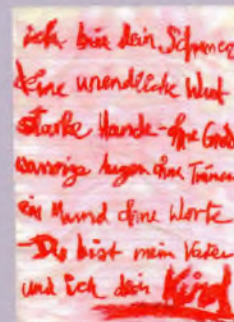 ich bin dein Schmerz
deine unendliche Wut
starke Hände - ohne
Augen ohne Tränen
ein Mund ohne Worte
Du bist mein Vater
und ich dein Kind